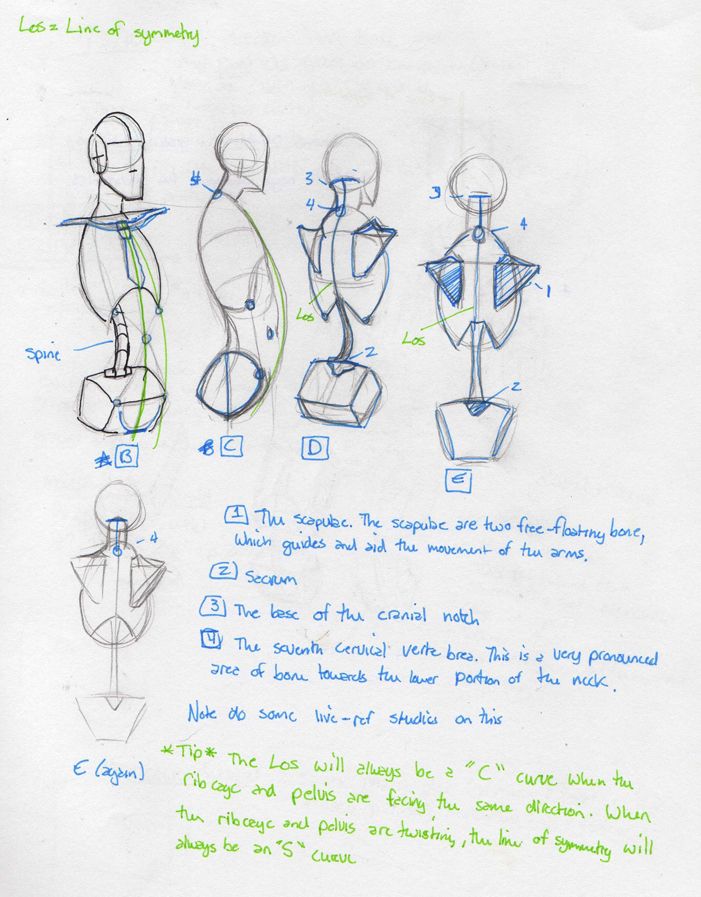 Los = Line of symmetry
3
4
3
4
1
Los
Los
Spine
2
2
B
C
D
E
4
1 The scapulae. The scapulae are two free-floating bone,
which guides and aid the movement of the arms.
2 Sacrum
3 The base of the cranial notch
4 The seventh cervical verte brea. This is a very pronounced
area of bone towards the lower portion of the neck.
Note do some live-ref studies on this
E (again)
*Tip* The Los will always be a "C" curve when the
ribcage and pelvis are facing the same direction. When
the ribcage and pelvis are twisting, the line of symmetry will
always be an "S" curve